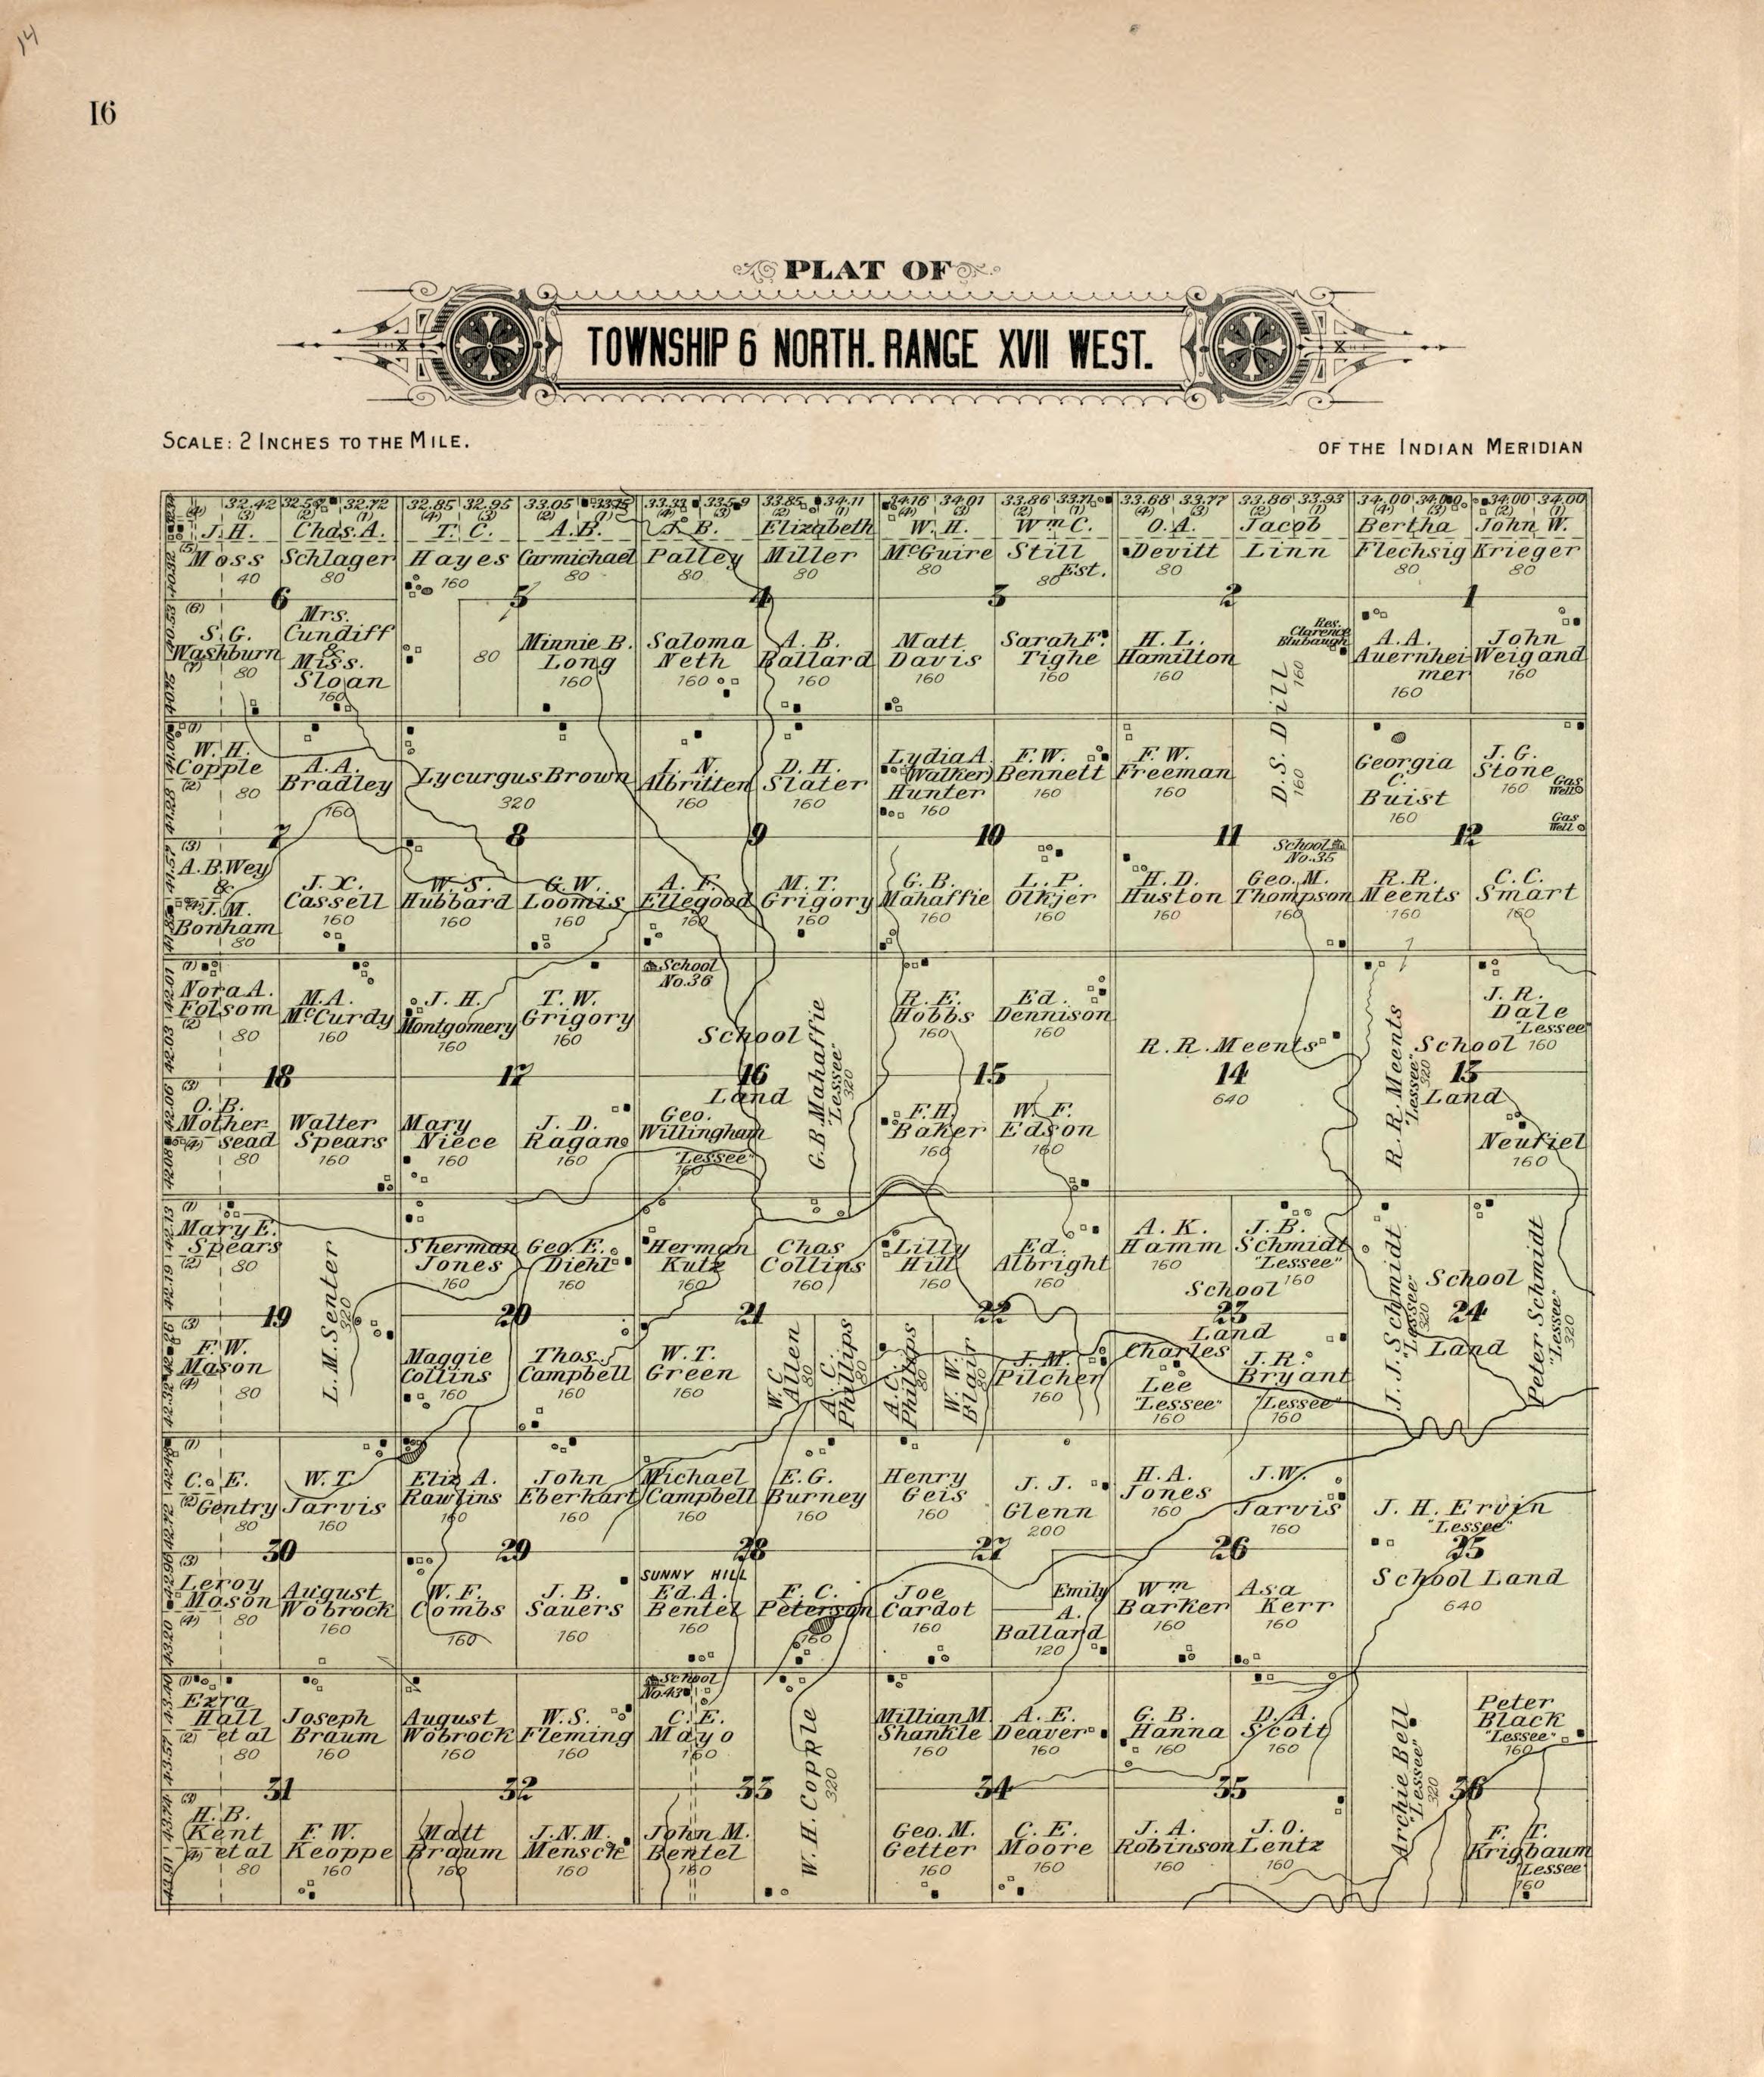 14
16
PLAT OF
TOWNSHIP 6 NORTH. RANGE XVII WEST.
SCALE: 2 INCHES TO THE MILE.
OF THE INDIAN MERIDIAN
32.42 32.72 32.85 32.95 33.05 33.85 34.11 34.16 34.01 33.86 33.68 33.77 33.86 33.93 34.00 34.00 34.00
J. H.
Moss
40
Chas. A.
Schlager
80
T. C.
Hayes
160
A. B.
Carmichael
80
Palley
80
Elizabeth
Miller
80
W. H.
McGuire
80
Wm C.
Still
Est.
80
O. A.
Devitt
80
Jacob
Linn
Bertha
Flechsig
80
John W.
Krieger
80
6
5
4
3
2
1
S. G.
Washburn
80
Mrs.
Cundiff
&
Miss.
Sloan
160
80
Minnie B.
Long
160
Saloma
Neth
160
A. B.
Ballard
160
Matt
Davis
160
Sarah F.
Tighe
160
H. L.
Hamilton
160
Res.
Clarence
Blubaugh
D. S. Dill
160
160
A. A.
Auernhei
mer
160
John
Weigand
160
W. H.
Copple
80
A. A.
Bradley
160
Lycurgus Brown
320
I. N.
Albritten
160
D. H.
Slater
160
Lydia A.
(Walker)
Hunter
160
F. W.
Bennett
160
F. W.
Freeman
160
Georgia
C.
Buist
160
J. G.
Stone
160
Gas
Well
Gas
Well
7
8
9
10
11
12
A. B. Wey
&
J. M.
Bonham
80
J. X.
Cassell
160
W. S.
Hubbard
160
G. W.
Loomis
160
A. F.
Ellegood
160
M. T.
Grigory
160
G. B.
Mahaffie
160
L. P.
Olkjer
160
H. D.
Huston
160
School
No. 35
Geo. M.
Thompson
160
R. R.
Meents
160
C. C.
Smart
160
Nora A.
Folsom
80
M. A.
McCurdy
160
J. H.
Montgomery
160
T. W.
Grigory
160
School
No. 36
School
Land
G. B. Mahaffie
"Lessee"
320
R. E.
Hobbs
160
Ed.
Dennison
160
R. R. Meents
640
R. R. Meents
"Lessee"
320
School
Land
J. R.
Dale
"Lessee"
160
18
17
16
15
14
13
O. B.
Mother
sead
80
Walter
Spears
160
Mary
Niece
160
J. D.
Ragan
160
Geo.
Willingham
"Lessee"
160
F. H.
Baker
160
W. F.
Edson
160
Neufiel
160
Mary E.
Spears
80
L. M. Senter
320
Sherman
Jones
160
Geo. E.
Diehl
160
Herman
Kutz
160
Chas
Collins
160
Lilly
Hill
160
Ed.
Albright
160
A. K.
Hamm
160
J. B.
Schmidt
"Lessee"
160
School
Land
J. J. Schmidt
"Lessee"
320
School
Land
Peter Schmidt
"Lessee"
320
19
20
21
22
23
24
F. W.
Mason
80
Maggie
Collins
160
Thos.
Campbell
160
W. T.
Green
160
W. C.
Allen
80
A. C.
Phillips
80
A. C.
Phillips
80
W. W.
Blair
80
J. M.
Pilcher
160
Charles
Lee
"Lessee"
160
J. R.
Bryant
"Lessee"
160
C. E.
Gentry
80
W. T.
Jarvis
160
Eliz A.
Rawlins
160
John
Eberhart
160
Michael
Campbell
160
E. G.
Burney
160
Henry
Geis
160
J. J.
Glenn
200
H. A.
Jones
160
J. W.
Jarvis
160
J. H. Ervin
"Lessee"
School Land
640
30
29
28
27
26
25
Leroy
Mason
80
August
Wobrock
160
W. F.
Combs
160
J. B.
Sauers
160
SUNNY HILL
Ed. A.
Bentel
160
F. C.
Peterson
160
Joe
Cardot
160
Emily
A.
Balland
120
Wm
Barker
160
Asa
Kerr
160
Ezra
Hall
et al
80
Joseph
Braum
160
August
Wobrock
160
W. S.
Fleming
160
School
No. 43
C. E.
Mayo
160
W. H. Copple
320
Millian M.
Shankle
160
A. E.
Deaver
160
G. B.
Hanna
160
D. A.
Scott
160
Archie Bell
"Lessee"
320
Peter
Black
"Lessee"
160
31
32
33
34
35
36
H. B.
Kent
et al
80
F. W.
Keoppe
160
Matt
Braum
160
J. N. M.
Mensch
160
John M.
Bentel
160
Geo. M.
Getter
160
C. E.
Moore
160
J. A.
Robinson
160
J. O.
Lentz
160
F. T.
Krigbaum
"Lessee"
160